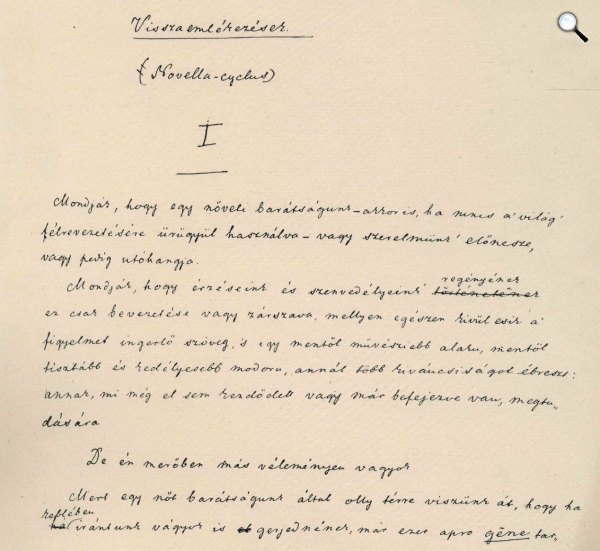 Visszaemlékezések.
(Novella-cyclus)
I
Mondják, hogy egy nőveli barátságunk – akkor is, ha nincs a' világ'
félrevezetésére ürügyül használva – vagy szerelmünk' előnesze,
vagy pedig utóhangja.
Mondják, hogy érzéseink és szenvedélyeink' regényének történetének
ez csak bevezetése vagy zárszava, mellyen egészen kivül esik a'
figyelmet ingerlő szöveg, 's igy mentől művésziebb alaku, mentől
tisztább és kedélyesebb modoru, annál több kiváncsiságot ébreszt:
annak, mi még el sem kezdődött vagy már befejezve van, megtu„
dására
De én merőben más véleményen vagyok
Mert egy nőt barátságunk által olly térre viszünk át, hogy ha
keblében iránturk vágyak is gerjednének, már ezek apró gêne tar„